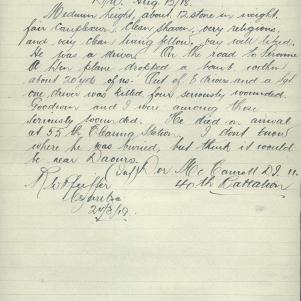 Aug 12/18.
Medium height, about 12 stone in weight,
fair complexion, clean shaven, very religious,
and very clean living fellow, very well liked.
He was a driver. On the road to
A Hun plane dropped a bomb
about 20 yds of us. Out of 6 drivers and a Sgt
one driver was killed four seriously wounded.
Goodwin and I were among those
seriously wounded. He died on arrival
at 55th Clearing Station. I don't know
where he was buried, but think it would
be near Daours.
(Inf) or Mc D.J. 11.
Pfeiffer 40th Battalion